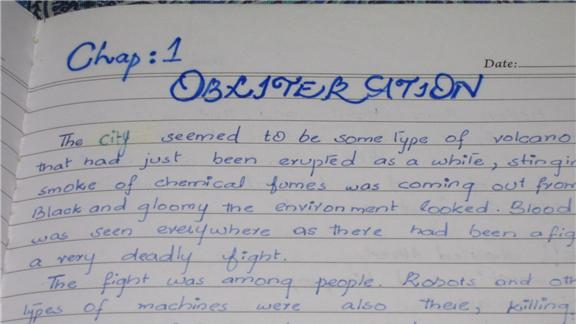 Chap: 1
Date:
OBLITERATION
The city seemed to be some type of volcano
that had just been erupted as a while, stingin
smoke of chemical fumes was coming out from
Black and gloomy the environment looked. Blood
was seen everywhere as there had been a fig
a very deadly fight.
The fight was among people. Robots and oth
types of machines were also there, killing.